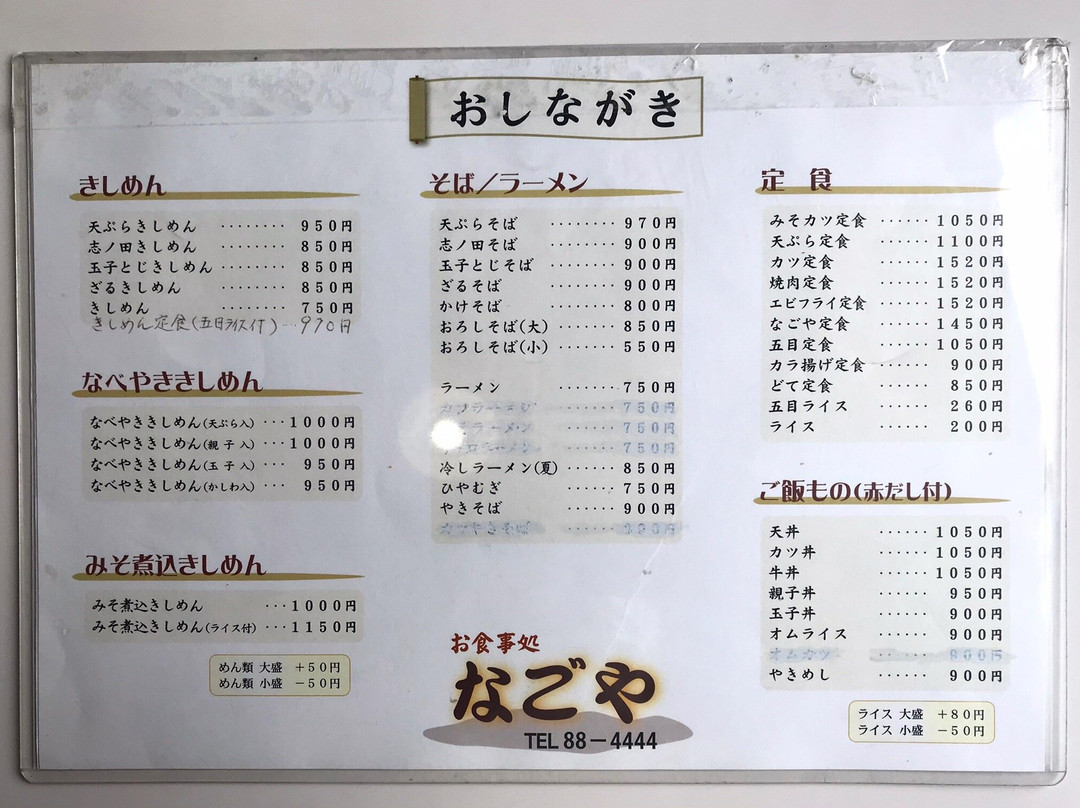 おしながき
きしめん
天ぷらきしめん ········ 950円
志ノ田きしめん ········ 850円
玉子とじきしめん ········ 850円
ざるきしめん ········ 850円
きしめん 750円
きしめん定食(五目ライス付)…970円
なべやききしめん
なべやききしめん(天ぷら入) ···1000円
なべやききしめん(親子入) ···1000円
なべやききしめん(玉子入) ··· 950円
なべやききしめん(かしわ入) ··· 950円
みそ煮込きしめん
みそ煮込きしめん ···1000円
みそ煮込きしめん(ライス付) ···1150円
めん類 大盛 +50円
めん類 小盛 -50円
そば/ラーメン
天ぷらそば ········ 970円
志ノ田そば ········ 900円
玉子とじそば ········ 900円
ざるそば ········ 900円
かけそば ········ 800円
おろしそば(大) ······· 850円
おろしそば(小) ······· 550円
ラーメン ········ 750円
ラーメン ······· 750円
ラーメン ······· 750円
ラーメン ······· 750円
冷しラーメン(夏) ······ 850円
ひやむぎ ······· 750円
やきそば ······· 900円
お食事処
なごや
TEL 88-4444
定食
みそカツ定食 ······ 1050円
天ぷら定食 ······ 1100円
カツ定食 ······ 1520円
焼肉定食 ······ 1520円
エビフライ定食 ······ 1520円
なごや定食 ······ 1450円
五目定食 ······ 1050円
カラ揚げ定食 ······ 900円
どて定食 ······ 850円
五目ライス ······ 260円
ライス ······ 200円
ご飯もの(赤だし付)
天丼 ······ 1050円
カツ丼 ······ 1050円
牛丼 ······ 1050円
親子丼 ······ 950円
玉子丼 ······ 900円
オムライス ······ 900円
オムカツ
やきめし ······ 900円
ライス 大盛 +80円
ライス 小盛 -50円